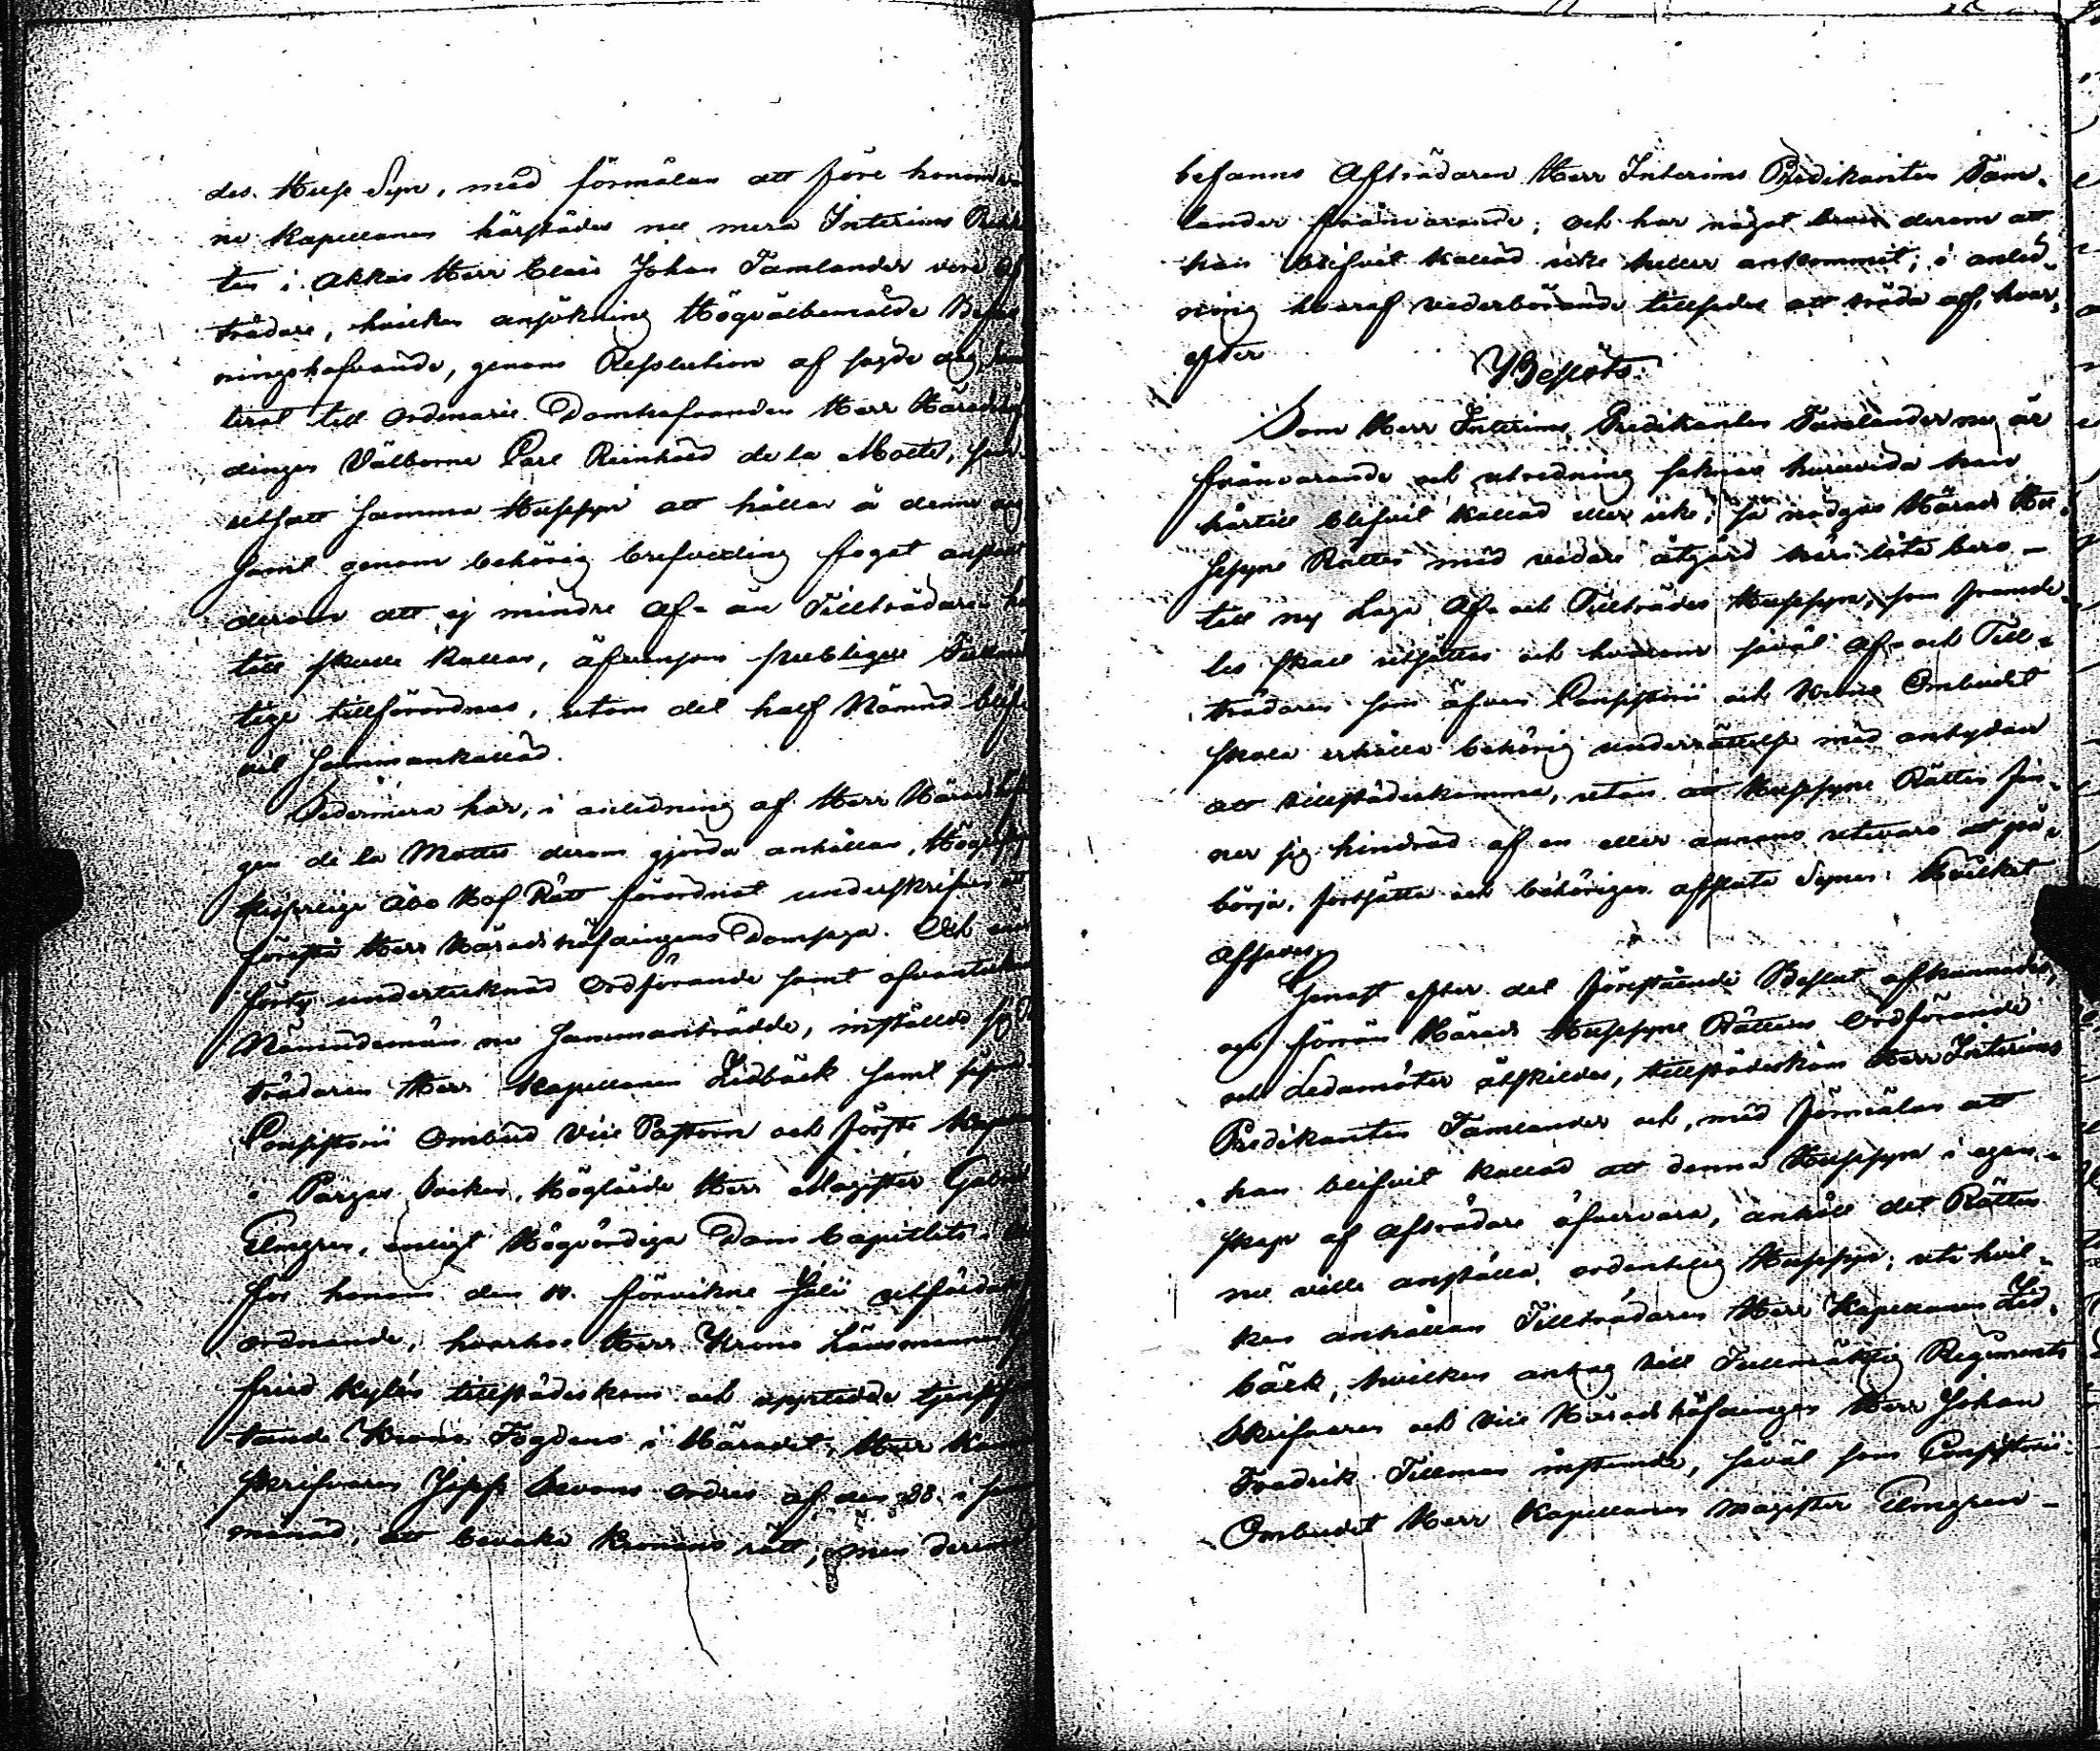 des Huse Syn, med förmälan att före honom
ne Kapellanen härstädes nu mera Interims
ten i Akkas Herr Claës Johan Tamlander vore af
trädare, hvilken ansökning Högvälbemälde
ningshafvande, genom Resolution af sagde dag
terat till Ordinarie Domhafvanden Herr Häradshöf
dingen Välborne Carl Reinhold de la Motte, som
utsatt samma Husesyn att hållas å denne dag
samt genom behörig brefvexling fogat anstalt
derom att ej mindre Af- än Tillträdaren
till skulle kallas, äfvensom publique Fullmäk
tige tillförordnas, utom det half Nämnd blif
vit sammankallad.
Sedermera har, i anledning af Herr Häradshöfdin
gen de la Mottes derom gjorda anhållan,
Kejserliga Åbo Hof Rätt förordnat underskrifven att
förestå Herr Häradshöfdingens Domsaga. Och
förty undertecknad Ordförande samt ofvanteckna
Nämndemän nu sammanträdde, inställde sig
trädaren Herr Kapellanen Lidbäck samt såsom
Consistorii Ombud Vice Pastorn och förste
i Pargas Socken, Höglärde Herr Magister Gabriel
Elmgren, enligt Högvördiga Dom Capitlets
för honom den 11. förvikne Julii utfärdade
ordnande, hvarhos Herr Krono Länsmannen
fried Kylén tillstädeskom och uppteedde tjenst
tande Krono Fogdens i Häradet, Herr
skrifvaren ordres af den 28. i
månad, att bevaka Kronans rätt; men deremot
befanns Afträdaren Herr Interims Predikanten Tam-
lander frånvarande; och har något derom att
han blifvit kallad icke heller ankommit; i anled-
ning hvaraf vederbörande tillsades att träda af, hvar-
efter
Beslöts:
Som Herr Interims Predikanten Tamlander nu är
frånvarande och utredning saknas huruvida han
härtill blifvit kallad eller icke; så nödgas Härads Hu-
sesyns Rätten med vidare åtgärd härs låta bero
till ny Laga Af- och Tillträdes Husesyn, som framde-
les skall utsättas och hvarom såväl Af- och Till-
trädaren som äfven Consistorii och Krono Ombudet
skola erhålla behörig underrättelse med antydan
att tillstädeskomma, utan att Husesyns Rätten fin-
ner sig hindrad af en eller annans utevaro att på-
börja, fortsätta och behörigen afsluta Synen. Hvilket
afsades.
Genast efter det förestående Beslut afkunnades,
och förrän Härads Husesyns Rättens Ordförande
och Ledamöter åtskildes, tillstädeskom Herr Interims
Predikanten Tamlander och, med förmälan att
han blifvit kallad att denna Husesyn i egen-
skap af Afträdare öfvervara, anhöll det Rätten
nu ville anställa ordentelig Husesyn; uti hvil-
ken anhållan Tillträdaren Herr Kapellanen Lid-
bäck, hvilken antog till Fullmäktig Regiments
Skrifvaren och Vice Häradshöfdingen Herr Johan
Fredrik Tillman instämde, såväl som Consistorii
Ombudet Herr Kapellanen Magister Elmgren